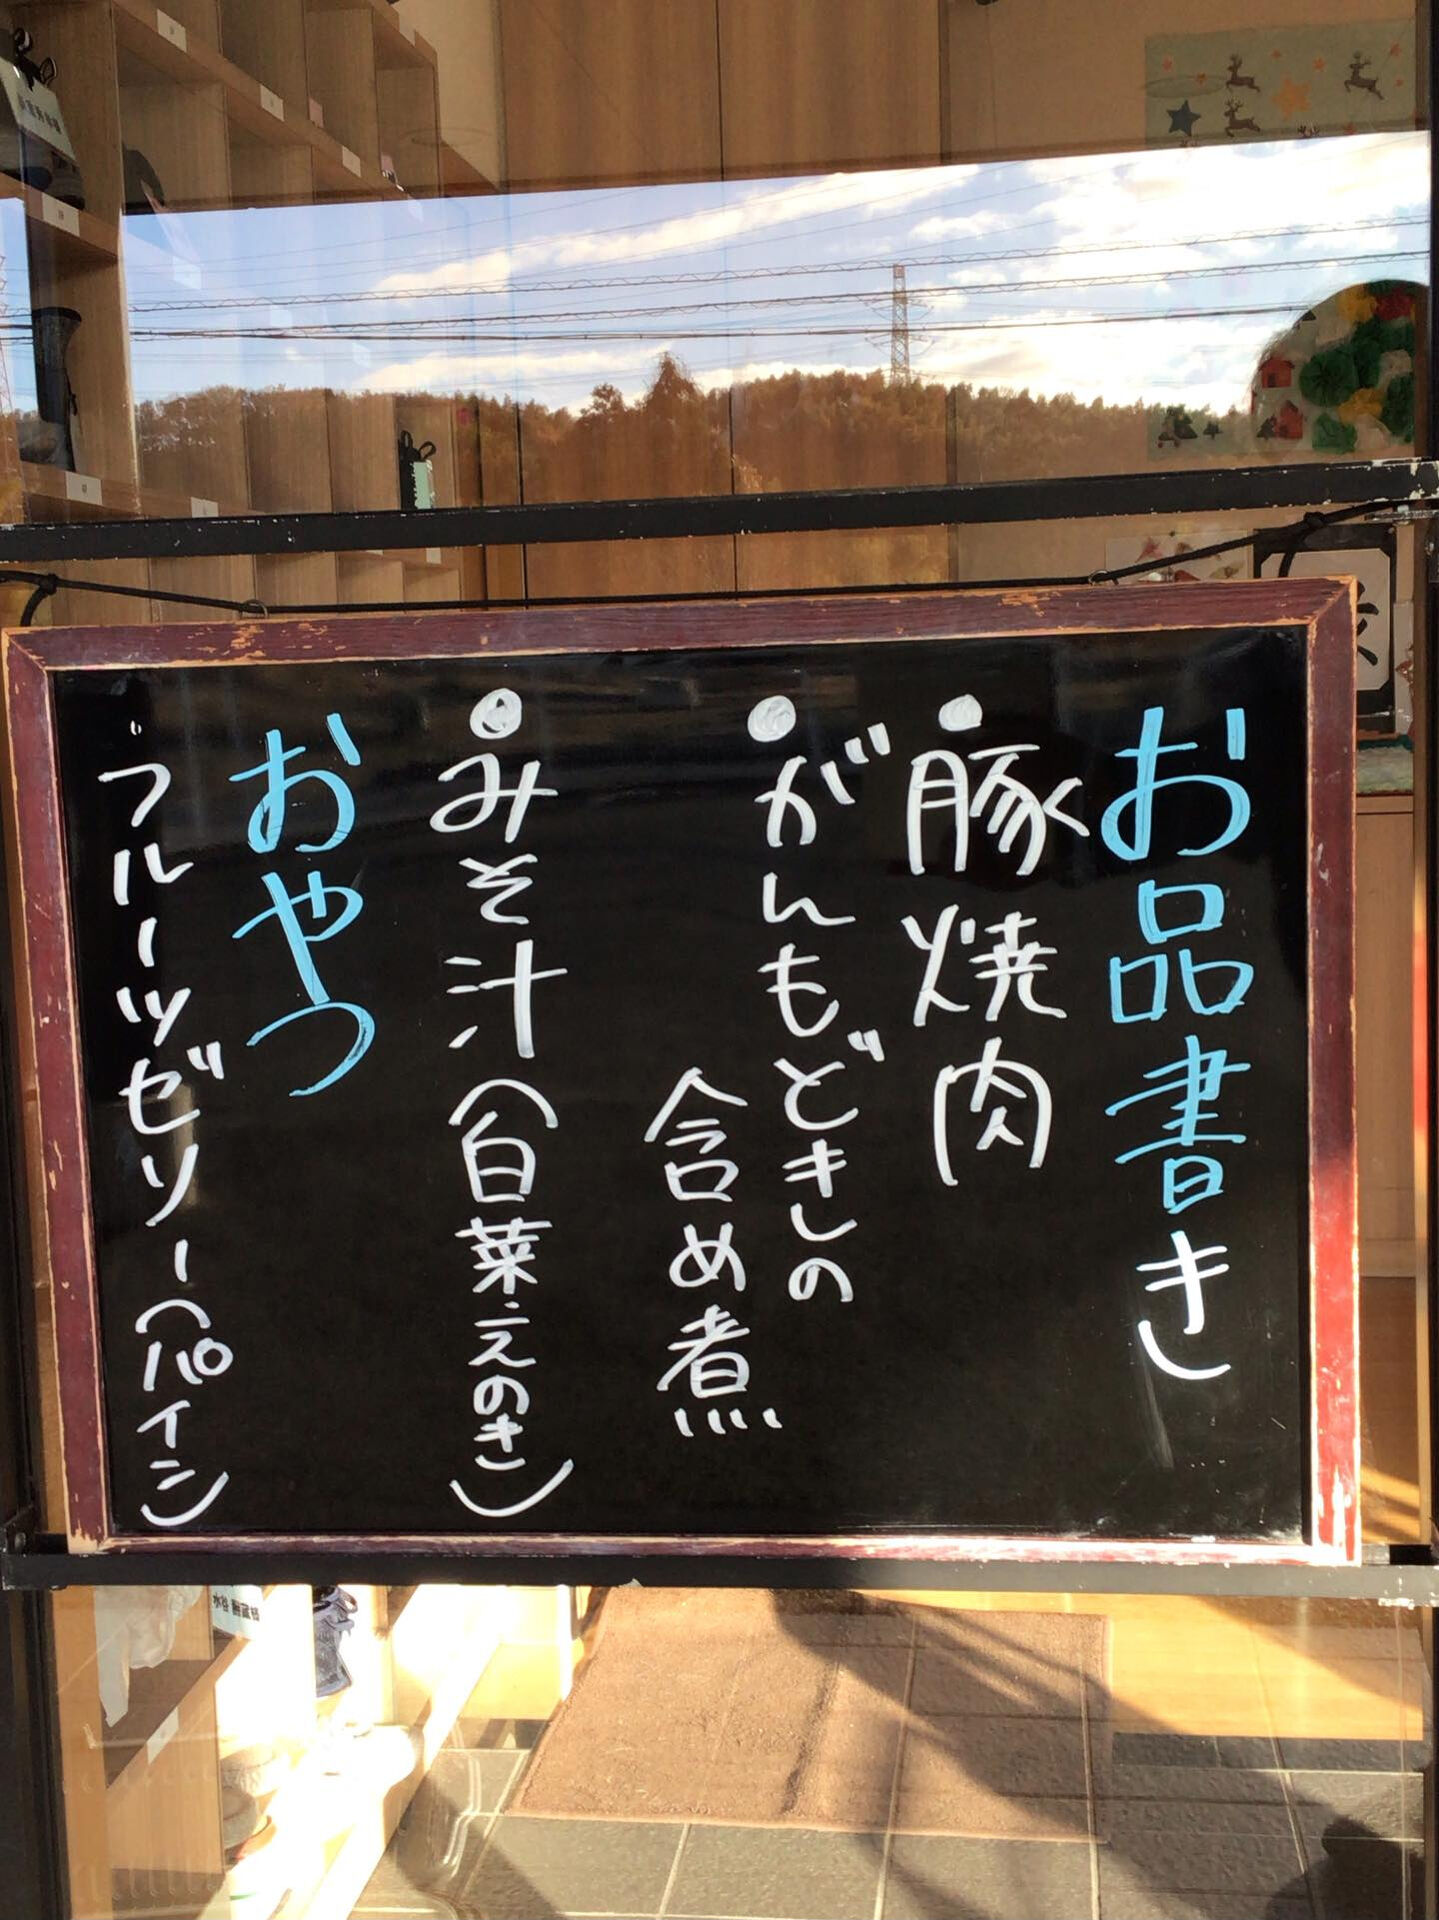 お品書き
豚焼肉
がんもどきの
含め煮
みそ汁(白菜、えのき)
おやつ
フルーツゼリー(パイン)